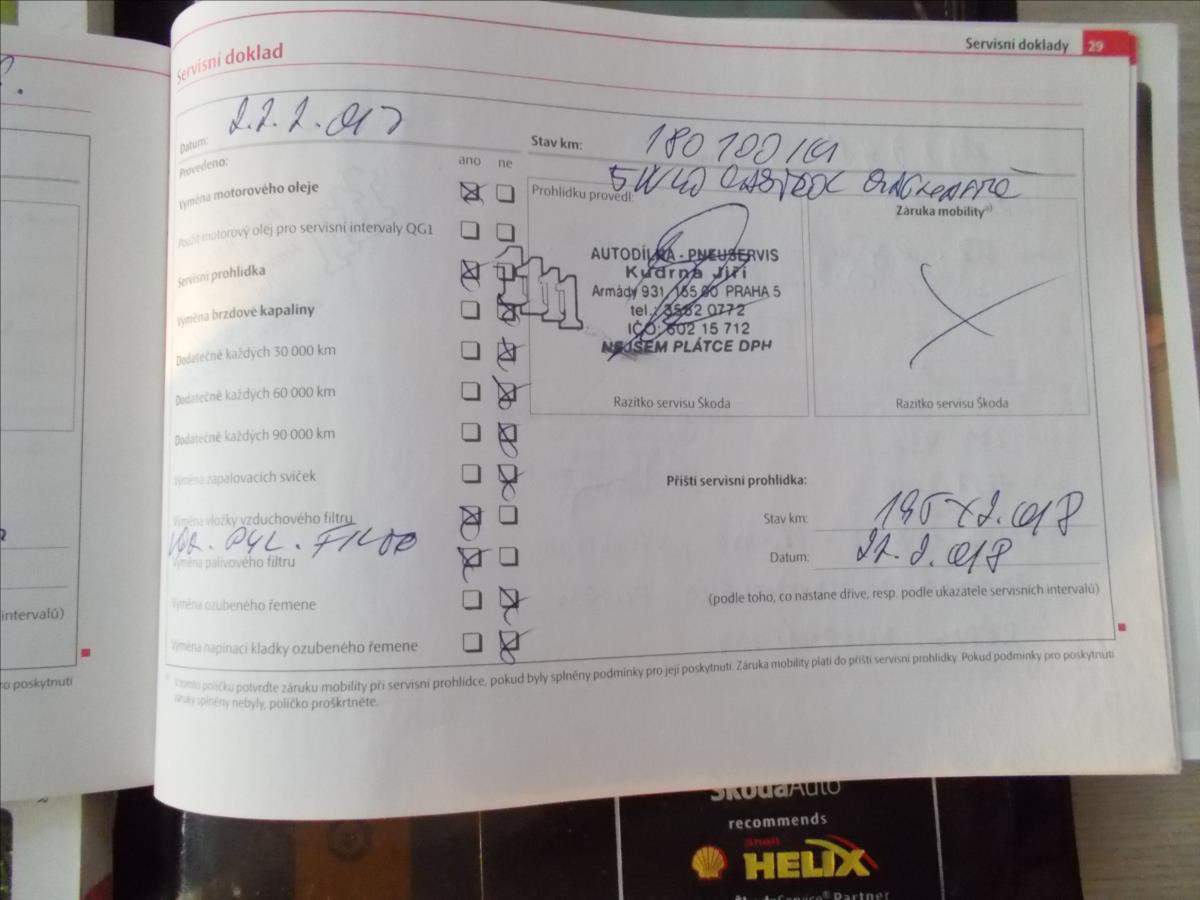 Servisní doklady 29
Servisní doklad
Datum: 22.2.017
Stav km: 180 100 km
Provedeno: ano ne
Výměna motorového oleje
Použit motorový olej pro servisní intervaly QG1
Servisní prohlídka
Výměna brzdové kapaliny
Dodatečně každých 30 000 km
Dodatečně každých 60 000 km
Dodatečně každých 90 000 km
Výměna zapalovacích svíček
Výměna vložky vzduchového filtru
PYL. FILTR
Výměna palivového filtru
Výměna ozubeného řemene
Výměna napínací kladky ozubeného řemene
5W40 CASTROL
Prohlídku provedl:
AUTODÍLNA - PNEUSERVIS
Kudrna Jiří
Armády 931, 155 00 PRAHA 5
tel.: 3552 0772
IČO: 602 15 712
NEJSEM PLÁTCE DPH
Razítko servisu Škoda
Záruka mobility a)
Razítko servisu Škoda
Příští servisní prohlídka:
Stav km:
Datum: 22.2.018
(podle toho, co nastane dříve, resp. podle ukazatele servisních intervalů)
a) V tomto políčku potvrďte záruku mobility při servisní prohlídce, pokud byly splněny podmínky pro její poskytnutí. Záruka mobility platí do příští servisní prohlídky. Pokud podmínky pro poskytnutí
záruky splněny nebyly, políčko proškrtněte.
intervalů)
ro poskytnutí
ŠkodaAuto
recommends
Shell
HELIX
ŠkodaService® Partner